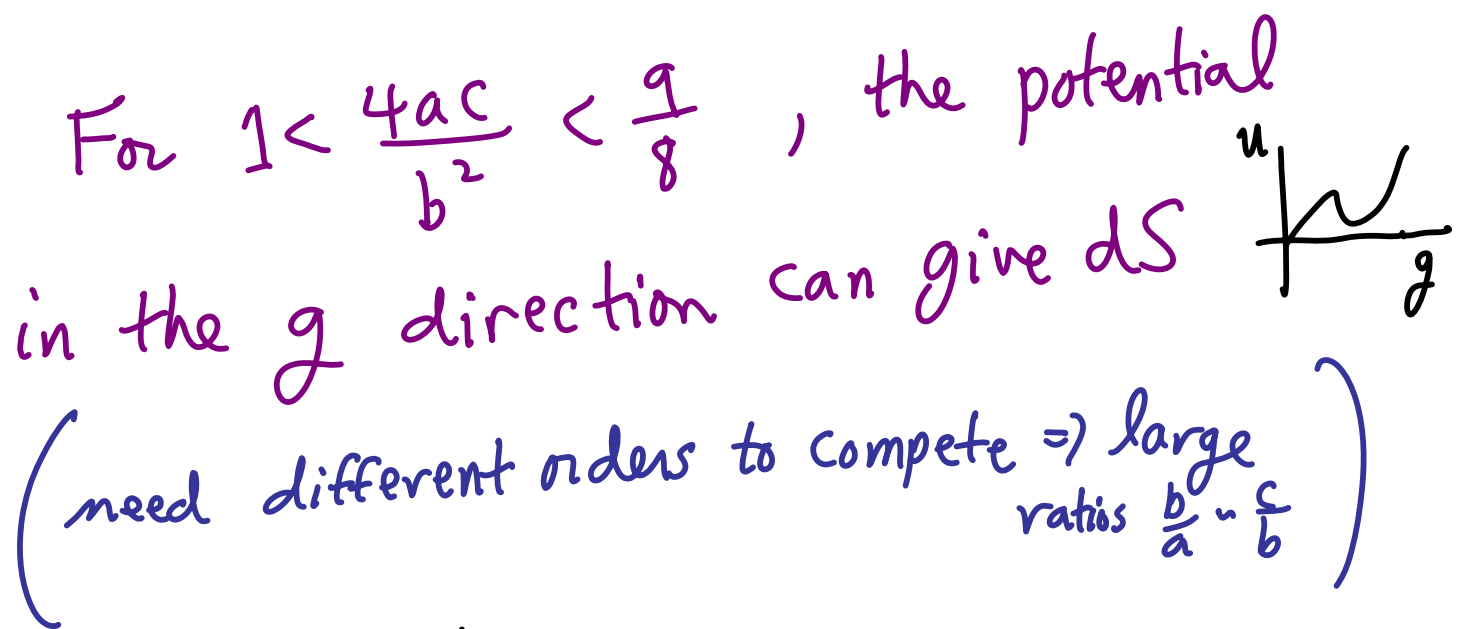 For 1 < 4ac/b² < 9/8 , the potential
in the g direction can give dS
u
g
(need different orders to compete => large
ratios b/a ~ c/b)